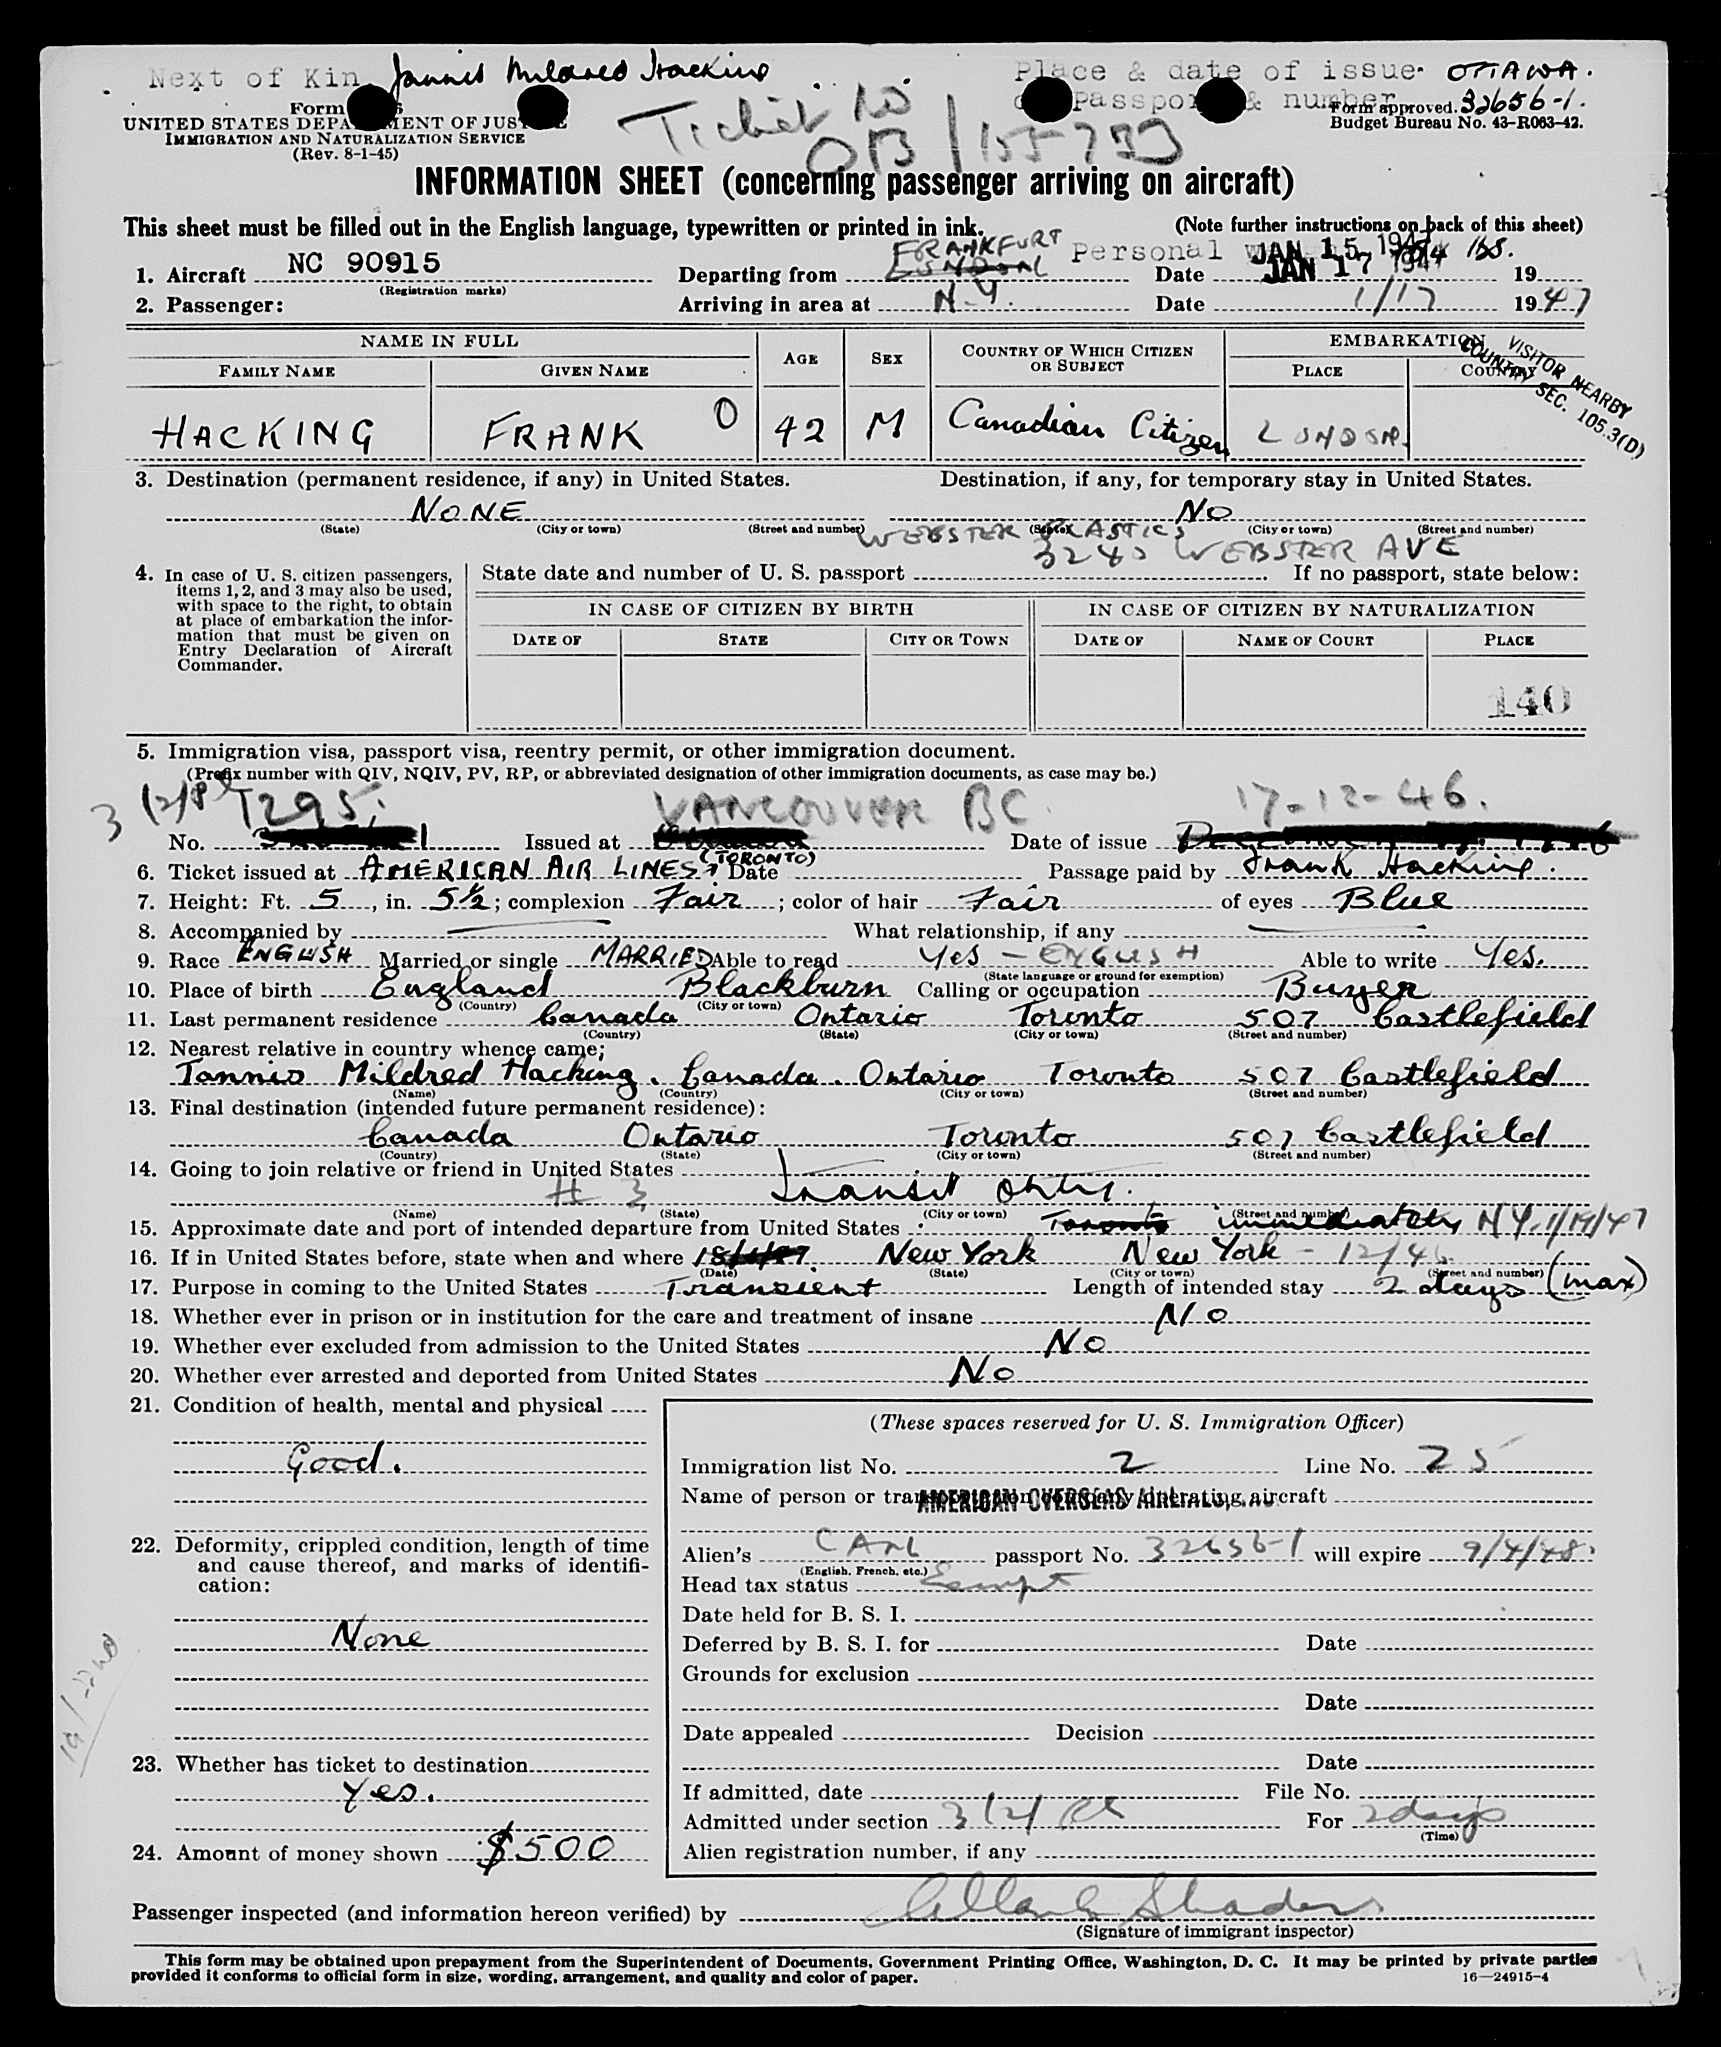 Next of Kin Tannis Mildred Hacking
Place & date of issue. OTTAWA.
Passport & number 32656-1.
Form
Form approved.
UNITED STATES DEPARTMENT OF JUSTICE
Budget Bureau No. 43-R063-42.
IMMIGRATION AND NATURALIZATION SERVICE
(Rev. 8-1-45)
Ticket No
OB/155789
INFORMATION SHEET (concerning passenger arriving on aircraft)
This sheet must be filled out in the English language, typewritten or printed in ink.
(Note further instructions on back of this sheet)
Personal 174 lbs.
1. Aircraft NC 90915 Departing from FRANKFURT LONDON Date JAN 15 1947 JAN 17 1947 19
(Registration marks)
2. Passenger: Arriving in area at N.Y. Date 1/17 1947
NAME IN FULL AGE SEX COUNTRY OF WHICH CITIZEN OR SUBJECT EMBARKATION
FAMILY NAME GIVEN NAME PLACE COUNTRY
VISITOR NEARBY
COUNTRY SEC. 105.3(D)
HACKING FRANK O 42 M Canadian Citizen LONDON.
3. Destination (permanent residence, if any) in United States. Destination, if any, for temporary stay in United States.
NONE No
(State) (City or town) (Street and number) (State) (City or town) (Street and number)
WEBSTER PLASTICS
3240 WEBSTER AVE
4. In case of U. S. citizen passengers, items 1, 2, and 3 may also be used, with space to the right, to obtain at place of embarkation the information that must be given on Entry Declaration of Aircraft Commander.
State date and number of U. S. passport If no passport, state below:
IN CASE OF CITIZEN BY BIRTH IN CASE OF CITIZEN BY NATURALIZATION
DATE OF STATE CITY OR TOWN DATE OF NAME OF COURT PLACE
140
5. Immigration visa, passport visa, reentry permit, or other immigration document.
(Prefix number with QIV, NQIV, PV, RP, or abbreviated designation of other immigration documents, as case may be.)
3(2) 1295. VANCOUVER BC. 17-12-46.
No. Issued at Date of issue
6. Ticket issued at AMERICAN AIR LINES (TORONTO) Date Passage paid by Frank Hacking.
7. Height: Ft. 5, in. 5½; complexion Fair; color of hair Fair of eyes Blue
8. Accompanied by What relationship, if any
9. Race ENGLISH Married or single MARRIED Able to read Yes - ENGLISH Able to write Yes.
(State language or ground for exemption)
10. Place of birth England Blackburn Calling or occupation Buyer
(Country) (City or town)
11. Last permanent residence Canada Ontario Toronto 507 Castlefield
(Country) (State) (City or town) (Street and number)
12. Nearest relative in country whence came;
Tannis Mildred Hacking. Canada. Ontario Toronto 507 Castlefield
(Name) (Country) (City or town) (Street and number)
13. Final destination (intended future permanent residence):
Canada Ontario Toronto 507 Castlefield
(Country) (State) (City or town) (Street and number)
14. Going to join relative or friend in United States
H 3 Transit only.
(Name) (State) (City or town) (Street and number)
15. Approximate date and port of intended departure from United States: Toronto immediately NY. 1/19/47
16. If in United States before, state when and where New York New York - 12/46
(Date) (State) (City or town) (Street and number)
17. Purpose in coming to the United States Transient Length of intended stay 2 days (max)
18. Whether ever in prison or in institution for the care and treatment of insane No
19. Whether ever excluded from admission to the United States No
20. Whether ever arrested and deported from United States No
21. Condition of health, mental and physical
Good.
22. Deformity, crippled condition, length of time and cause thereof, and marks of identification:
None
23. Whether has ticket to destination
Yes.
24. Amount of money shown $500
(These spaces reserved for U. S. Immigration Officer)
Immigration list No. 2 Line No. 25
Name of person or transportation company operating aircraft
AMERICAN OVERSEAS AIRLINES, INC.
Alien's CAN passport No. 32656-1 will expire 9/4/48.
(English, French, etc.)
Head tax status Exempt
Date held for B. S. I.
Deferred by B. S. I. for Date
Grounds for exclusion
Date
Date appealed Decision
Date
If admitted, date File No.
Admitted under section 3(2) For 2 days
(Time)
Alien registration number, if any
Passenger inspected (and information hereon verified) by
(Signature of immigrant inspector)
This form may be obtained upon prepayment from the Superintendent of Documents, Government Printing Office, Washington, D. C. It may be printed by private parties
provided it conforms to official form in size, wording, arrangement, and quality and color of paper.
16—24915-4